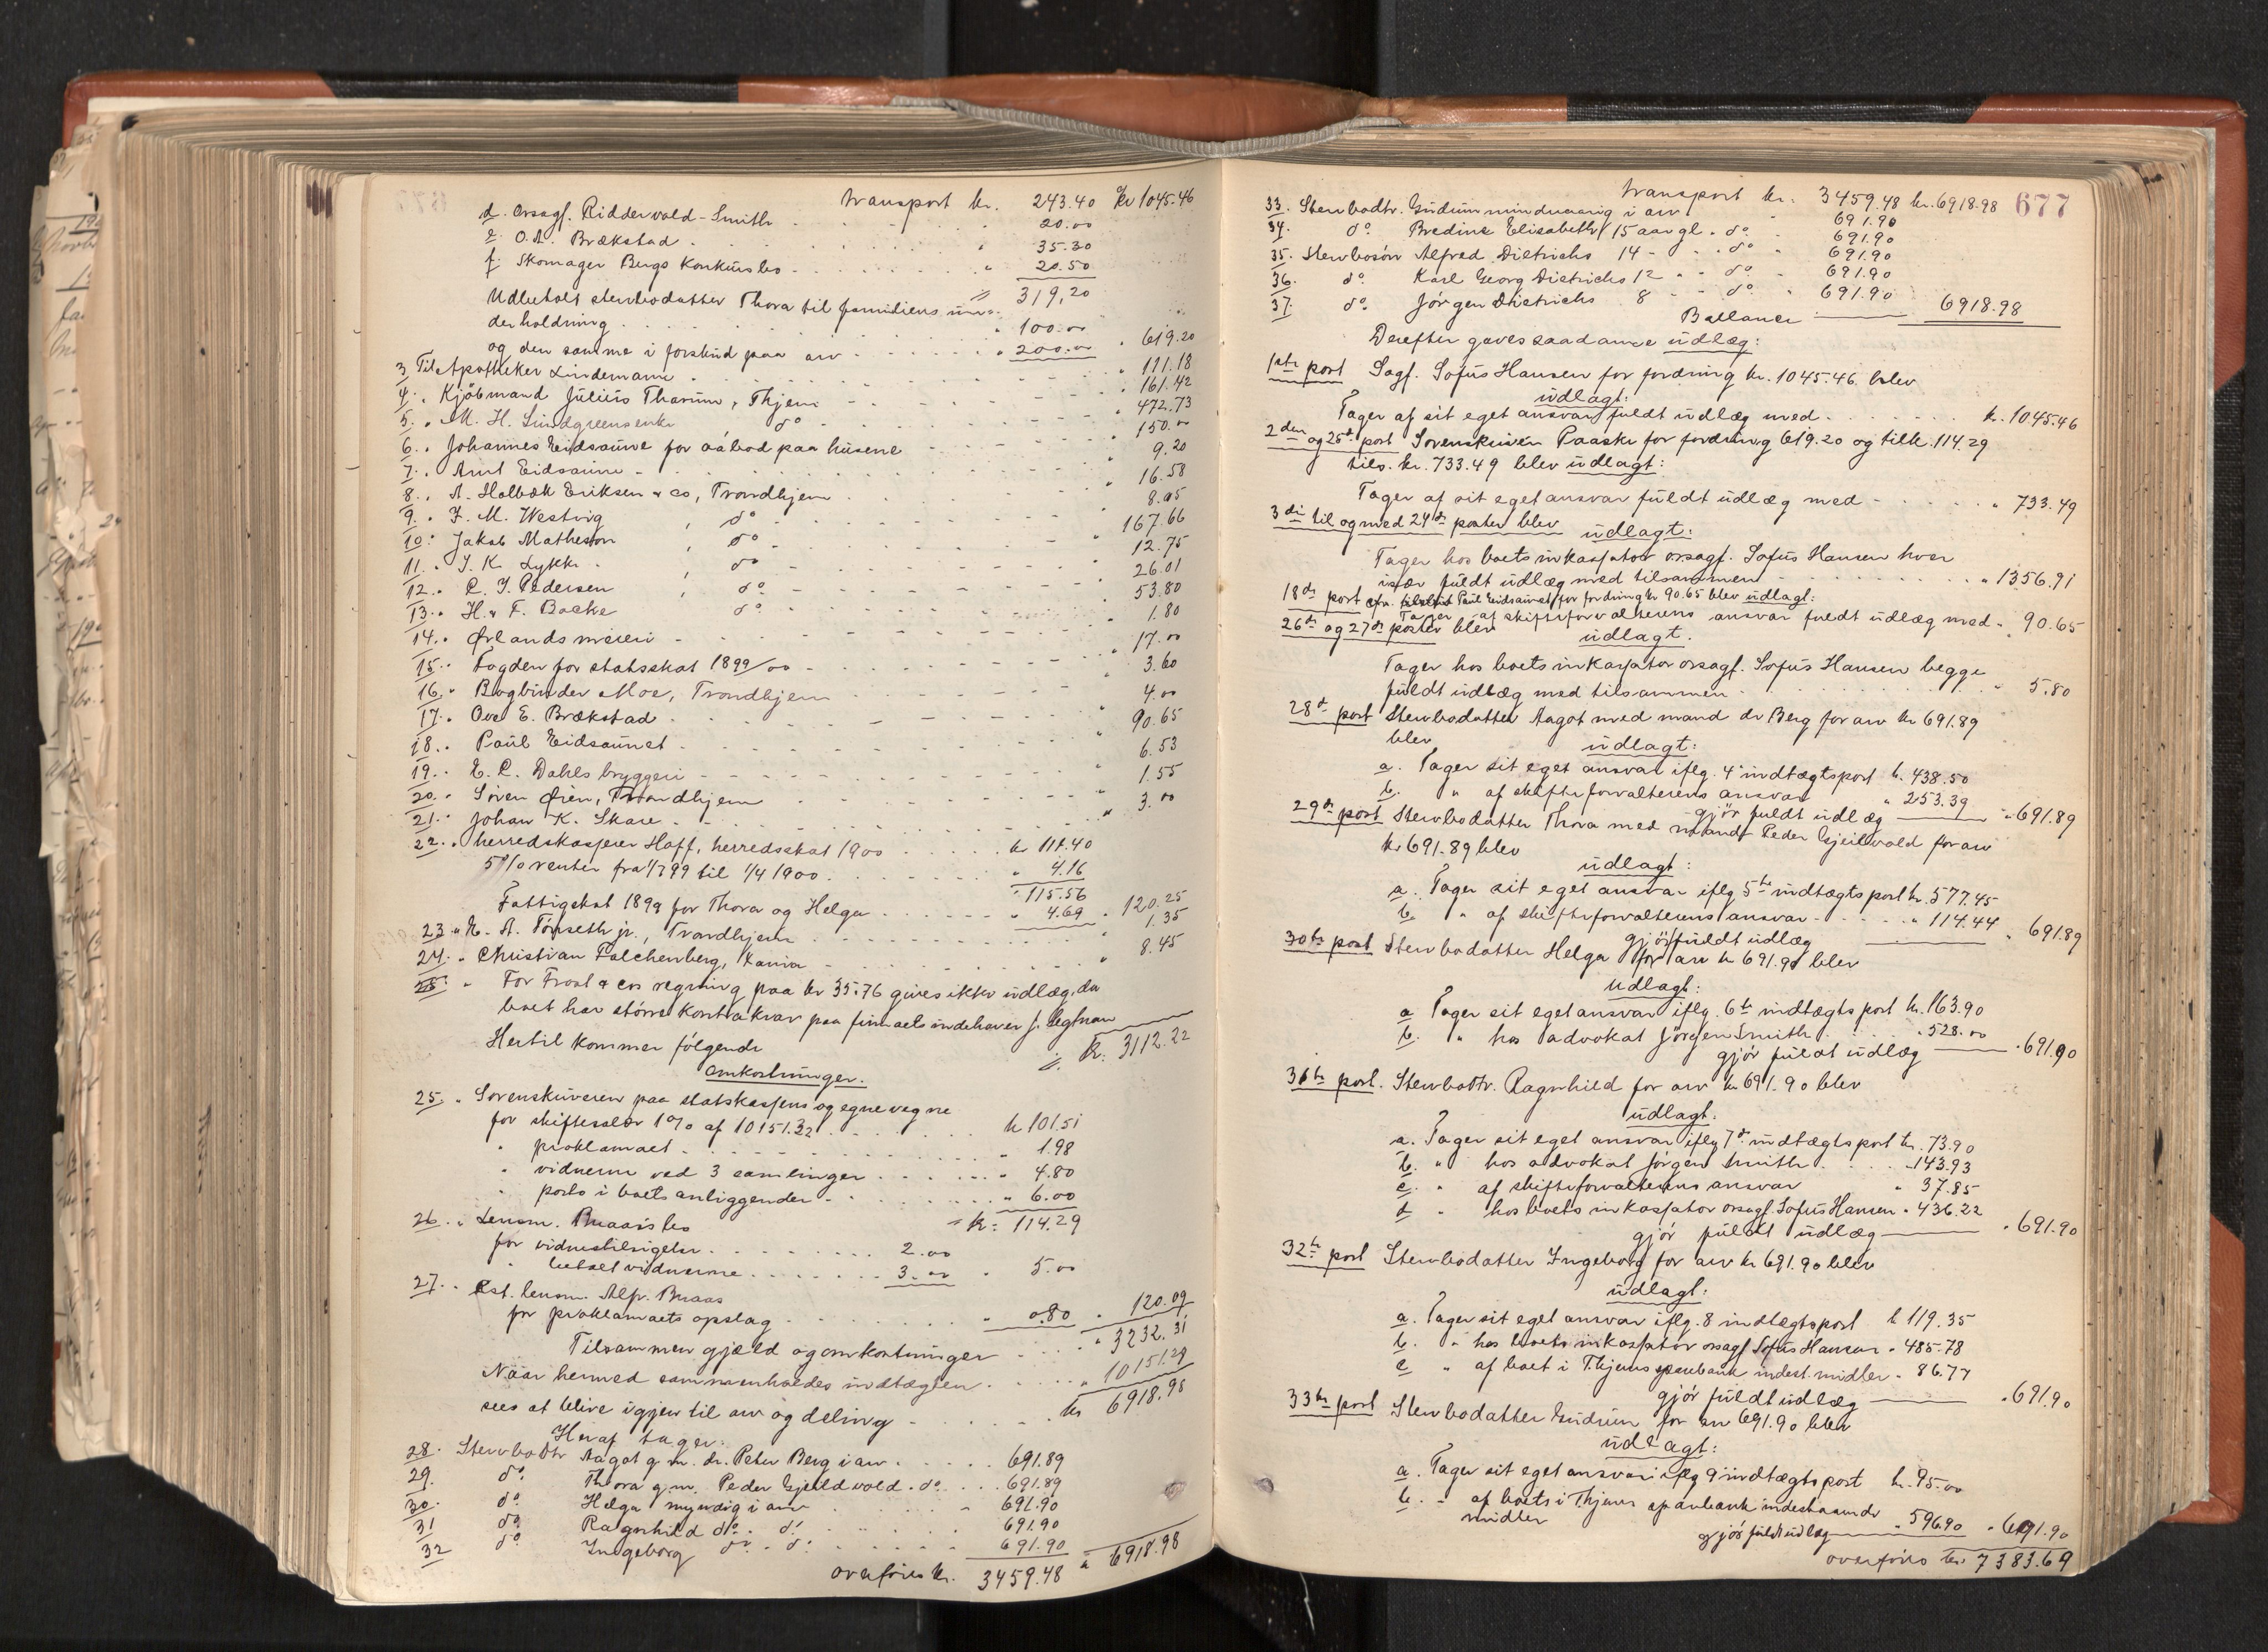 transport kr. 243.40 kr 1045.46
d. Orsagf. Riddervold-Smith 20.00
e. O.A. Brækstad 35.30
f. Skomager Bergs Konkursbo " 20.50
Udbetalt stervbodatter Thora til familiens un= // 319,20
derholdning " 100.00
og den samme i forskud paa arv " 200.00 " 619.20
3 Til Apotheker Lindemann " 111.18
4. " Kjøbmand Julius Tharum, Thjem " 161.42
5. " M. H. Lundgreens enke do " 472.73
6. " Johannes Eidsaune for aabod paa husene 150.00
7. " Arnt Eidsaune " 9.20
8. " A. Holbæk Eriksen & co, Trondhjem " 16.58
9. " F. M. Westvig , do 8.05
10. " Jakob Matheson , do " 167.66
11. " J. K. Lykke , do 12.75
12. " C. J. Pedersen , do 26.01
13. " H. & F. Backe do 53.80
14. " Ørlands meieri 1.80
15. " Fogden for statsskat 1899/00 " 17.00
16. " Bogbinder Moe, Trondhjem 3.60
17. " Ove E. Brækstad 4.00
18. " Paul Eidsaunet 90.65
19. " E. C. Dahls bryggeri 6.53
20. " Søren Øien, Trondhjem 1.55
21. " Johan K. Skare " 3.00
22. " herredskasserer Hoff, herredsskat 1900 kr 111.40
5% renter fra 1/7 99 til 1/4 1900 " 4.16
" 115.56
Fattigskat 1899 for Thora og Helga " 4.69 " 120.25
23. " E. A. Tønseth jr., Trondhjem " 1.35
24. " Christian Falchenberg, Kania " 8.45
25. " For Frost & cos regning paa kr 35.76 gives ikke udlæg, da
boet har større kontrakrav paa firmaets indehaver J.
Hertil kommer følgende // Kr. 3112.22
omkostninger.
25. " Sorenskriveren paa statskassens og egne vegne
for skiftesalær 1% af 10151.32 kr 101.51
" proklamaet " 1.98
" vidnerne ved 3 samlinger " 4.80
" porto i boets anliggender " 6.00
26. " Lensm. Braas bo = kr. 114.29
for vidnetilsigelse 2.00
" betalt vidnerne 3.00 " 5.00
27. " Cst. lensm. Alfr. Braas
for proklamaets opslag " 0.80 " 120.09
Tilsammen gjæld og omkostninger " 3232.31
Naar hermed sammenholdes indtægten " 10151.29
sees at blive igjen til arv og deling kr 6918.98
Heraf tager:
28. Stervbodtr Aagot g.m. dr. Peter Berg i arv 691.89
29. do Thora g.m. Peder Gjeildvold. do 691.89
30. do Helga myndig i arv 691.90
31 do Ragnhild do. do 691.90
32 do Ingeborg do. do 691.90
overføres kr. 3459.48 " 6918.98
transport kr. 3459.48 kr. 6918.98 677
33. Stervbodtr. Gudrun mindreaarig i arv 691.90
34. do Bredine Elisabeth 15 aar gl. do 691.90
35. Stervbosøn Alfred Dietrichs 14 - " do 691.90
36. do Karl Georg Dietrichs 12 " " do 691.90
37. do Jørgen Dietrichs 8 " " do 691.90 6918.98
Ballance
Derefter gaves saadanne udlæg:
1ste post Sagf. Sofus Hansen for fordring kr. 1045.46 blev
udlagt:
Tager af sit eget ansvar fuldt udlæg med kr. 1045.46
2den og 25de post Sorenskriver Paaske for fordring 619.20 og tilk. 114.29
tils. kr. 733.49 blev udlagt:
Tager af sit eget ansvar fuldt udlæg med " 733.49
3die til og med 24de poster blev udlagt:
Tager hos boets inkassator orsagf. Sofus Hansen hver
især fuldt udlæg med tilsammen " 1356.91
18de post Paul Eidsaunet for fordring kr 90.65 blev udlagt:
Tager af skifteforvalterens ansvar fuldt udlæg med " 90.65
26de og 27de poster blev udlagt.
Tager hos boets inkassator orsagf. Sofus Hansen begge
fuldt udlæg med tilsammen " 5.80
28de post Stervbodatter Aagot med mand dr Berg for arv kr 691.89
blev udlagt:
a. Tager sit eget ansvar iflg. 4 indtægtspost kr. 438.50
b. " af skifteforvalterens ansvar " 253.39
gjør fuldt udlæg " 691.89
29de post Stervbodatter Thora med mand Peder Gjeildvold for arv
kr 691.89 blev
udlagt:
a. Tager sit eget ansvar iflg 5te indtægtspost kr. 577.45
b. " af skifteforvalterens ansvar " 114.44
gjør fuldt udlæg " 691.89
30te post Stervbodatter Helga for arv kr 691.90 blev
udlagt:
a Tager sit eget ansvar iflg. 6te indtægtspost kr. 163.90
b. " hos advokat Jørgen Smith " 528.00
gjør fuldt udlæg " 691.90
31te post. Stervbodtr. Ragnhild for arv kr 691.90 blev
udlagt.
a. Tager sit eget ansvar iflg 7de indtægtspost kr. 73.90
b. " hos advokat Jørgen Smith 143.93
c. " af skifteforvalterens ansvar " 37.85
d " hos boets inkassator orsagf. Sofus Hansen " 436.22
gjør fuldt udlæg " 691.90
32te post Stervbodatter Ingeborg for arv kr 691.90 blev
udlagt:
a. Tager sit eget ansvar iflg. 8 indtægtspost k 119.35
b. " hos boets inkassator orsagf Sofus Hansen " 485.78
c " af boet i Thjems sparebank indest. midler " 86.77
gjør fuldt udlæg " 691.90
33te post Stervbodatter Gudrun for arv 691.90 blev
udlagt:
a. Tager sit eget ansvar iflg 9 indtægtspost kr. 95.00
b. " af boets i Thjems sparebank indestaaende
midler " 596.90 " 691.90
gjør fuldt udlæg
overføres kr. 7383.69